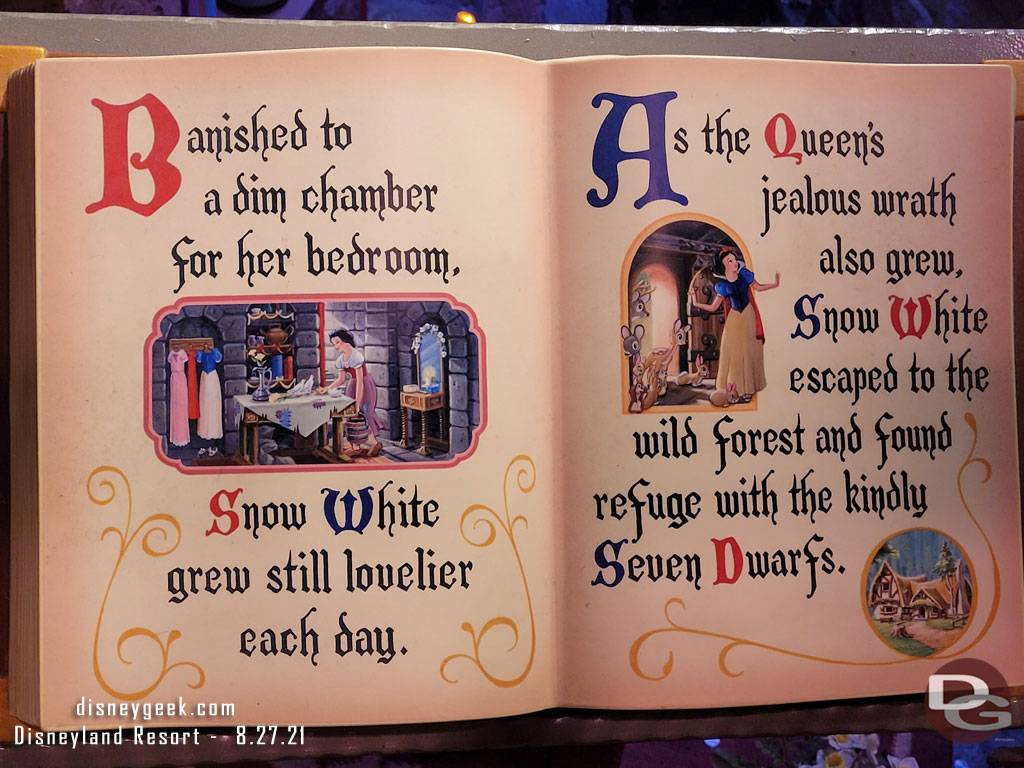 Banished to
a dim chamber
for her bedroom,
Snow White
grew still lovelier
each day.
As the Queen's
jealous wrath
also grew,
Snow White
escaped to the
wild forest and found
refuge with the kindly
Seven Dwarfs.
disneygeek.com
Disneyland Resort - 8.27.21
DG